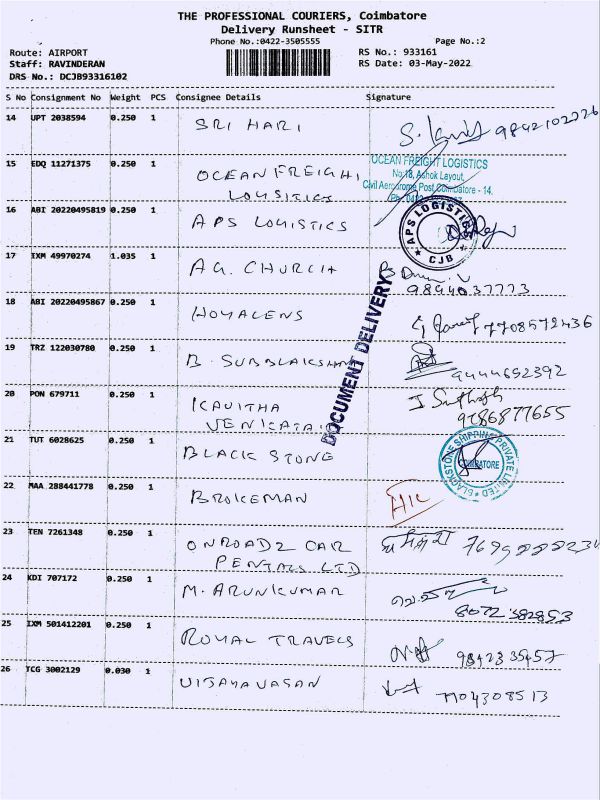 THE PROFESSIONAL COURIERS, Coimbatore
Delivery Runsheet - SITR
Phone No.:0422-3505555
Page No.:2
Route: AIRPORT
RS No.: 933161
Staff: RAVINDERAN
RS Date: 03-May-2022
DRS No.: DCJB93316102
S No Consignment No Weight PCS Consignee Details Signature
14 UPT 2038594 0.250 1 SRI HARI
15 EDQ 11271375 0.250 1 OCEAN FREIGHT
LOGISTICS
OCEAN FREIGHT LOGISTICS
No:18, Ashok Layout,
Civil Aerodrome Post, Coimbatore - 14.
16 ABI 20220495819 0.250 1 APS LOGISTICS
APS LOGISTICS
CJB
17 IXM 49970274 1.035 1 AG. CHURCH
9894037773
18 ABI 20220495867 0.250 1 HOYALENS
7708572436
DOCUMENT DELIVERY
19 TRZ 122030780 0.250 1 B. SUBBLAKSHMI
9444652392
20 PON 679711 0.250 1 KAVITHA
9786877655
21 TUT 6028625 0.250 1 BLACK STONE
BLACKSTONE SHIPPING PRIVATE LIMITED
COIMBATORE
22 MAA 288441778 0.250 1 BROKEMAN
23 TEN 7261348 0.250 1 ONROADZ CAR
RENTALS LTD
24 KDI 707172 0.250 1 M. ARUNKUMAR
25 IXM 501412201 0.250 1 ROYAL TRAVELS
9842335457
26 TCG 3002129 0.030 1 VIJAYAVASAN
7704308513